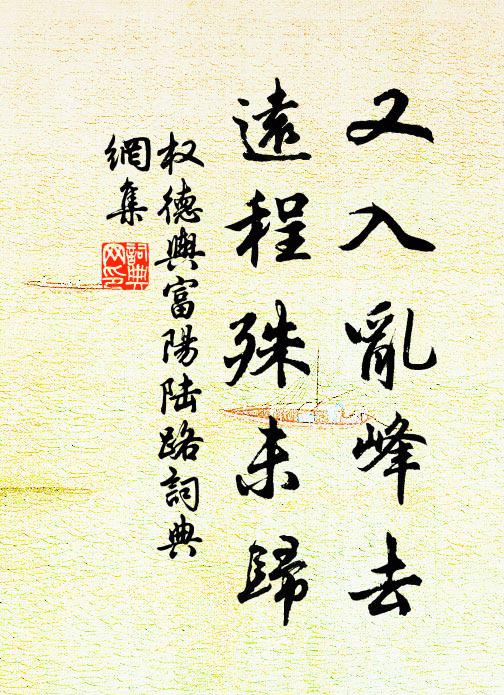 又入亂峰去
遠程殊未歸
权德輿富陽陆路詞典
網集
詞典
网印